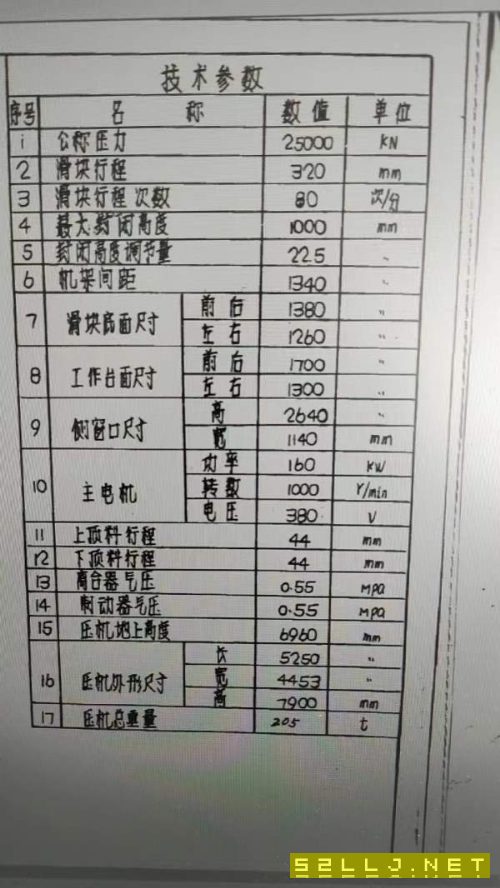 技术参数
序号 名 称 数值 单位
1 公称压力 25000 KN
2 滑块行程 320 mm
3 滑块行程次数 80 次/分
4 最大封闭高度 1000 mm
5 封闭高度调节量 22.5 〃
6 机架间距 1340 〃
7 滑块底面尺寸 前后 1380 〃
左右 1260 〃
8 工作台面尺寸 前后 1700 〃
左右 1300 〃
9 侧窗口尺寸 高 2640 〃
宽 1140 mm
10 主电机 功率 160 KW
转数 1000 r/min
电压 380 V
11 上顶料行程 44 mm
12 下顶料行程 44 mm
13 离合器气压 0.55 MPa
14 制动器气压 0.55 MPa
15 压机地上高度 6960 mm
16 压机外形尺寸 长 5250 〃
宽 4453 〃
高 7900 mm
17 压机总重量 205 t
52LLJ.NET